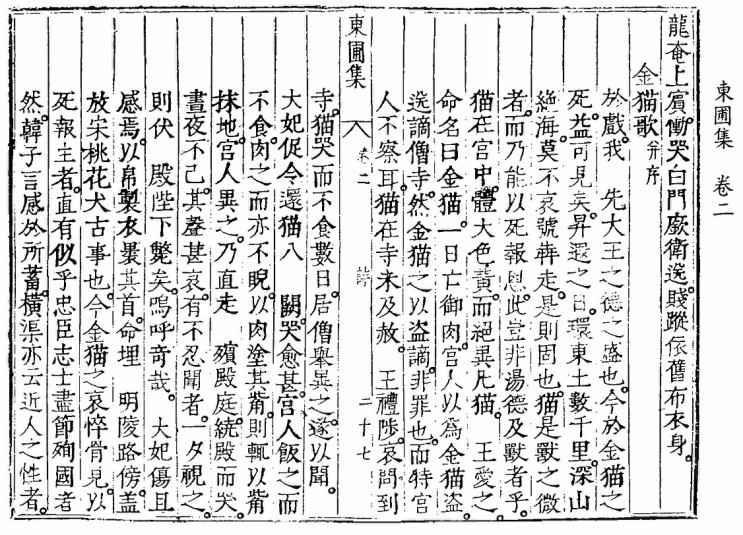 東圃集 卷二
龍奄上賓慟哭白門厥衛逸賤蹤依舊布衣身。
金猫歌 并序
於戲我 先大王之德之盛也。今於金猫之
死。益可見矣。昇遐之日。環東土數千里。深山
絕海。莫不哀號犇走。是則固也。猫是獸之微
者。而乃能以死報恩。此豈非湯德及獸者乎。
猫在宮中。體大色黃。而絕異凡猫。 王愛之。
命名曰金猫。一日亡御肉。宮人以爲金猫盜。
逸謫僧寺。然金猫之以盜謫。非罪也。而特宮
人不察耳。猫在寺未及赦。 王禮陟。哀問到
東圃集 卷二 詩 二十七
寺。猫哭而不食數日。居僧擧異之。遂以聞。
大妃促令還猫入 闕。哭愈甚。宮人飯之而
不食。肉之而亦不睨。以肉塗其觜。則輒以觜
抹地。宮人異之。乃直走 殯殿庭。繞殿而哭。
晝夜不已。其聲甚哀。有不忍聞者。一夕視之。
則伏 殿陛下斃矣。嗚呼奇哉。 大妃傷且
感焉。以帛製衣。褁其首。命埋 明陵路傍。盖
放宋桃花犬古事也。今金猫之哀悴骨見。以
死報主者。直有似乎忠臣志士盡節殉國者
然。韓子言感於所蓄。橫渠亦云近人之性者。